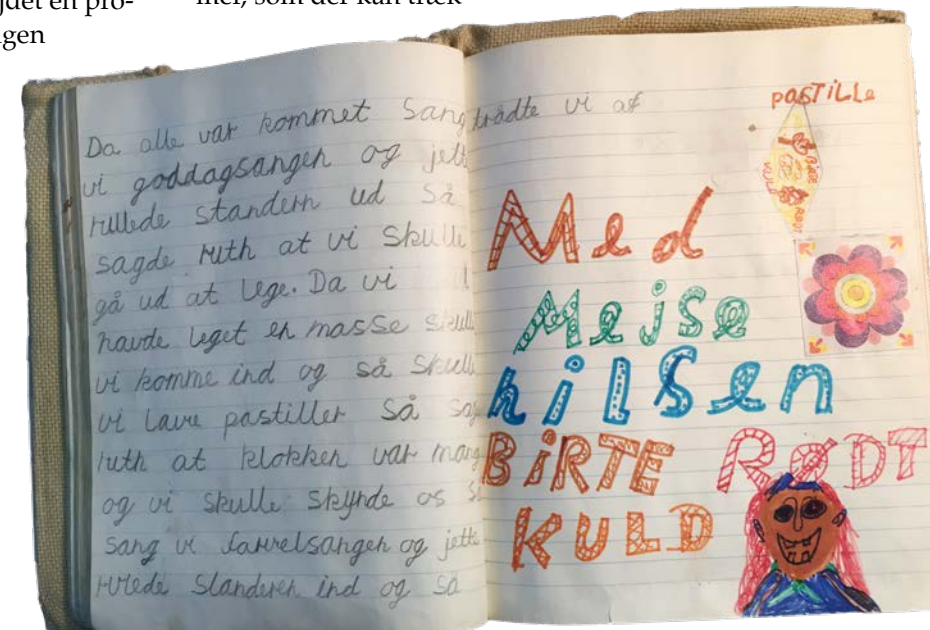 jdet en pro-
gen
mer, som der kan træk
Da alle var kommet Sang
vi goddagsangen og jette
rullede standern ud så
sagde ruth at vi skulle
gå ud at lege. Da vi
havde leget en masse skulle
vi komme ind og så skulle
vi lave pastiller så sag
ruth at klokken var mang
og vi skulle skynde os så
sang vi farvelsangen og jette
rulede standeren ind og så
trådte vi af
Med
Mejse
hilsen
BiRTE RØDT
KULD
pASTiLLe
BiRTE
RØDT
KULD